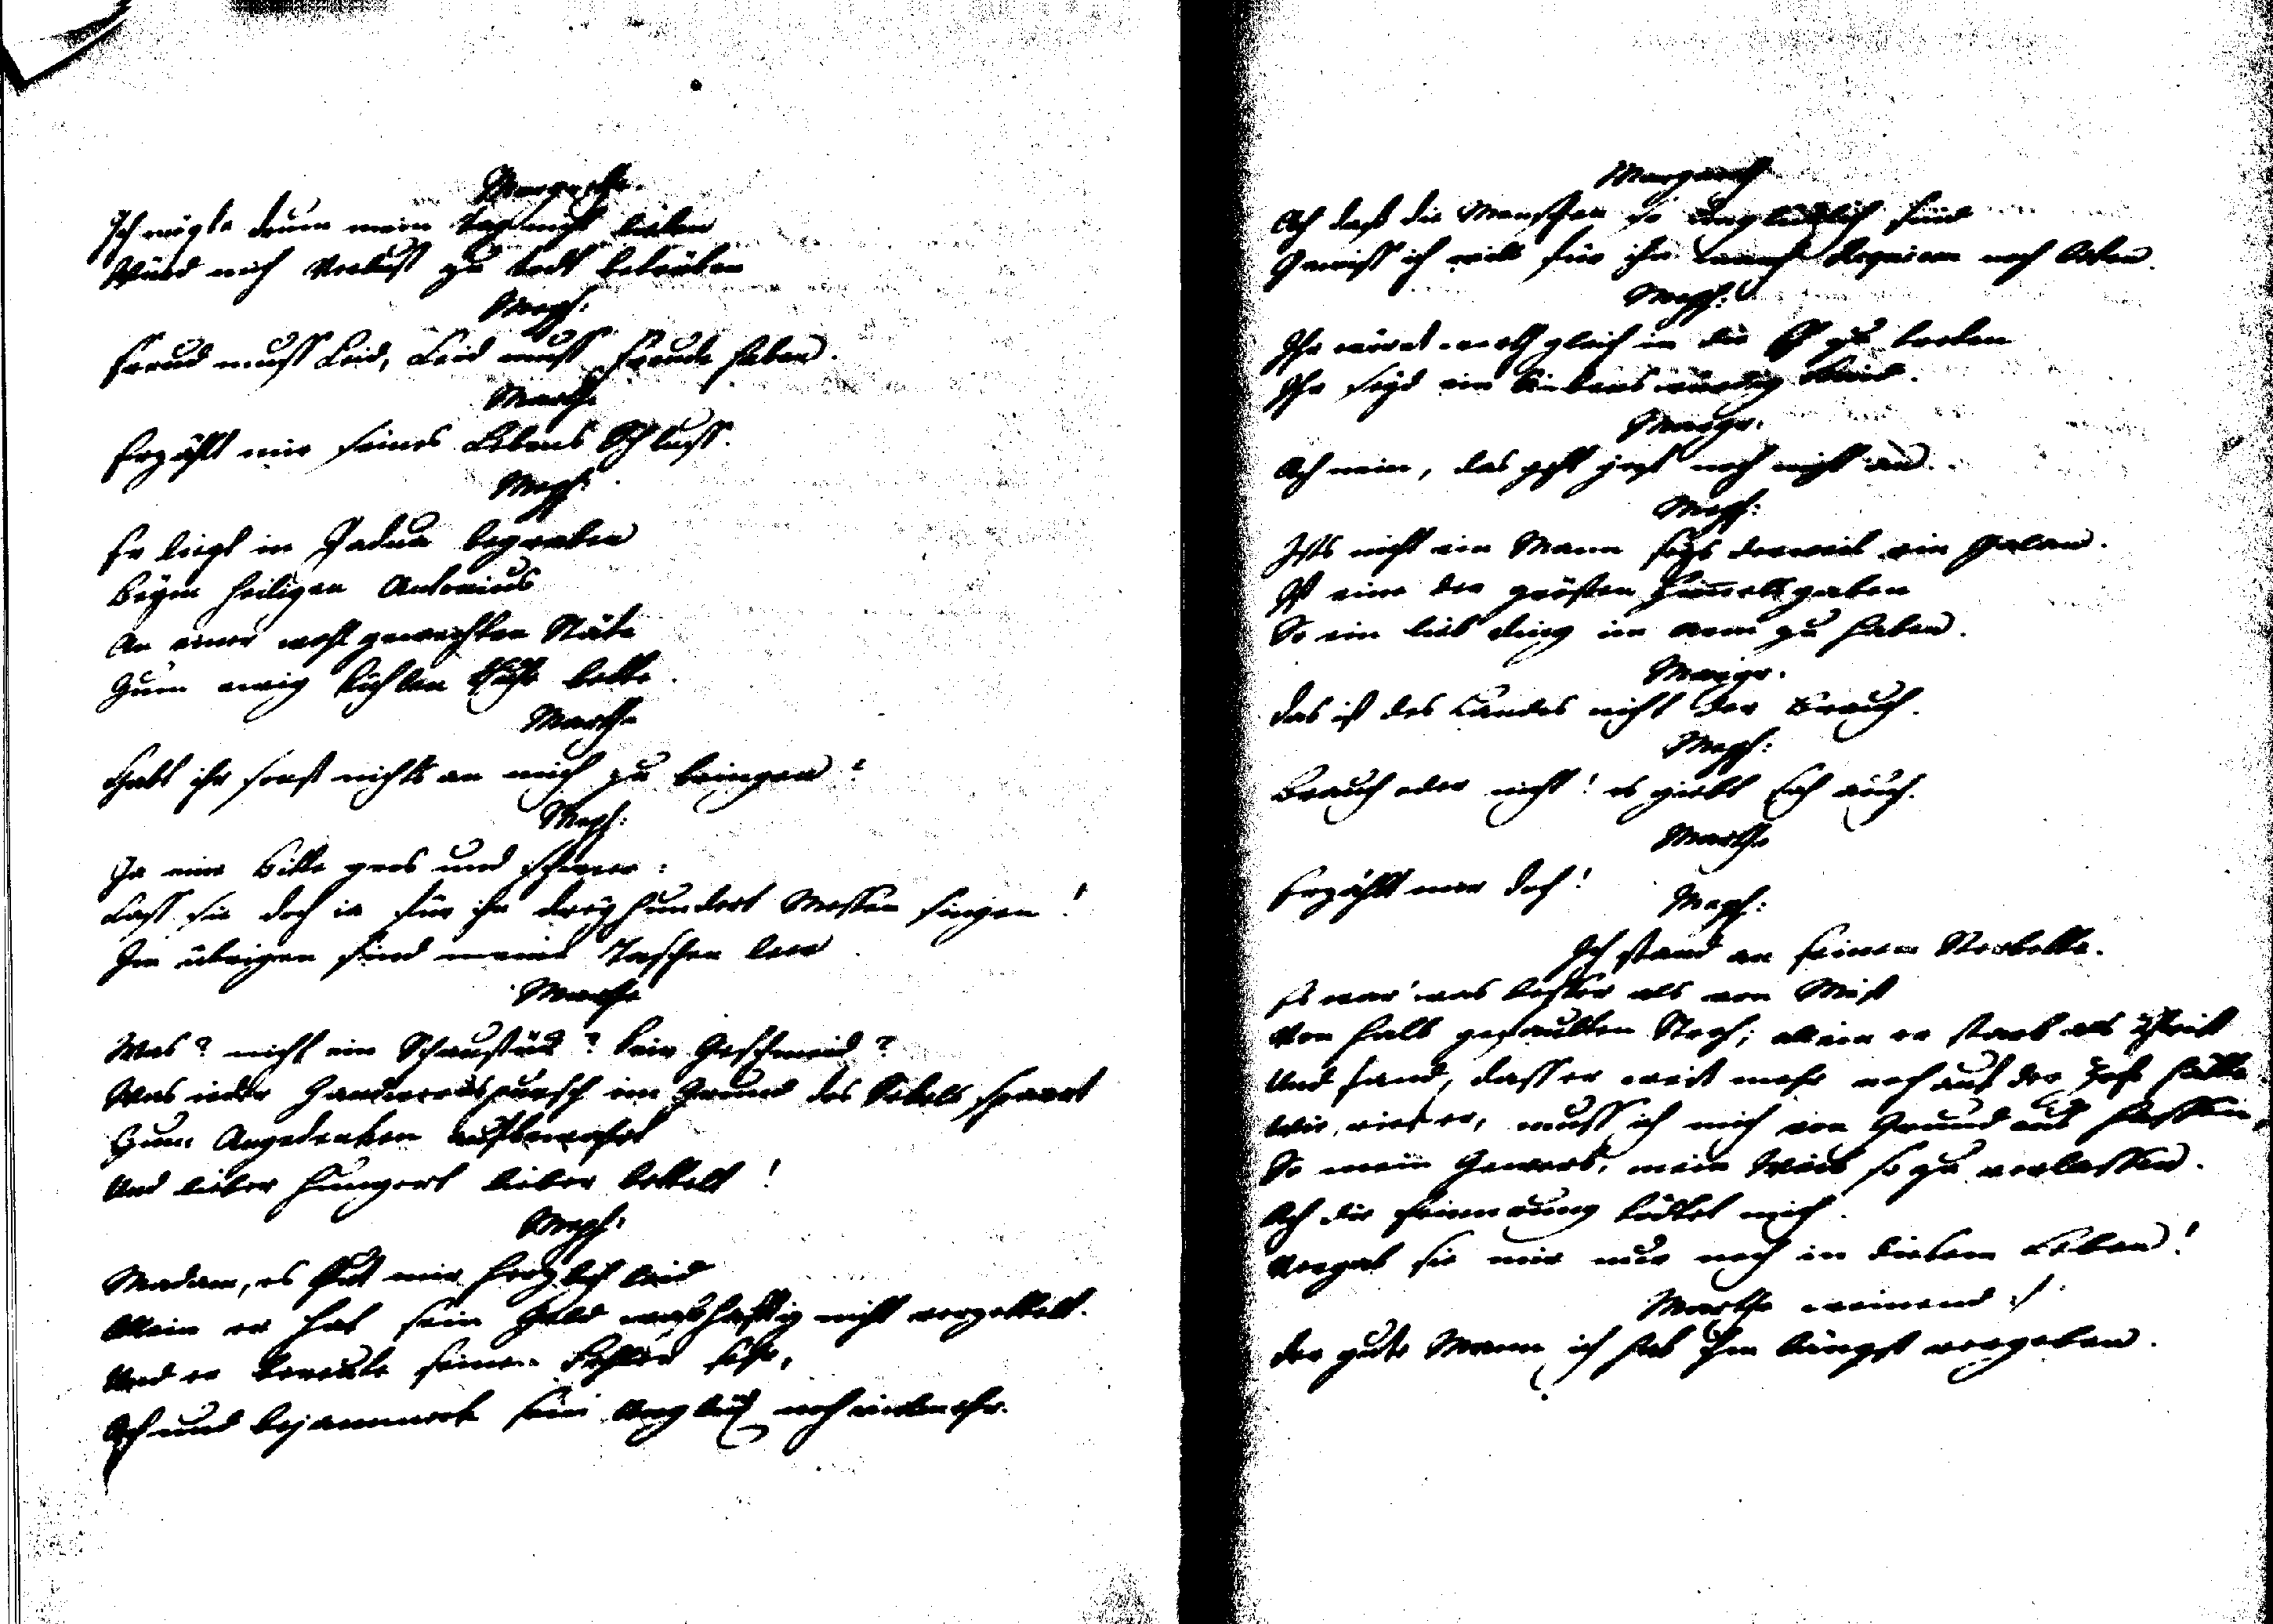 Margrethe.
Ich mögte drum mein Tag nicht lieben
Würd mich Verlust zu todt betrüben
Meph:
Freud muss Leid, Leid muss Freude haben.
Marthe
Erzählt mir seines Lebens Schluss.
Meph:
Er liegt in Padua begraben
Beym heiligen Antonius
An einer wohl geweihten Stäte
Zum ewig kühlen Ruhe bette.
Marthe
Habt ihr sonst nichts an mich zu bringen?
Meph:
Ja eine Bitte gros und schwer:
Lass sie doch ia für ihn dreyhundert Messen singen!
Im übrigen sind meine Taschen leer
Marthe
Was? nicht ein Schaustück? kein Geschmeid?
Was ieder Handwercks pursch im Grund des Seckels spaart
Zum Angedencken aufbewahrt
Und lieber hungert lieber bettelt!
Meph:
Madam, es thut mir herzlich leid
Allein er hat sein Geld wahrhafftig nicht verzettelt.
Und er bereute seine Fehler sehr,
Ach und bejammerte sein Unglück noch vielmehr.
Margareth
Ach dass die Menschen so unglücklich sind
Gewiss ich will für ihn manch Requiem noch beten.
Meph:
Ihr wäret werth gleich in die Eh zu treten
Ihr seyd ein liebenswürdig Kind.
Margr.
Ach nein, das geht jezt noch nicht an.
Meph:
Ists nicht ein Mann seys derweil ein Galan.
Ist eine der grössten Himmelsgaben
So ein lieb Ding im Arm zu haben.
Margr.
Das ist des Landes nicht der Brauch.
Meph:
Brauch oder nicht! es giebt sich auch.
Marthe
Erzählt mir doch!
Meph:
Ich stand an seinem Sterbebette.
Es war was besser als von Mist
Von halb gefaultem Stroh; allein er starb als Christ
Und fand, dass er weit mehr noch auf der Zeche hätte
Wie, rief er, muss ich mich von Grund aus hassen,
So mein Gewerb, mein Weib so zu verlassen.
Ach die Erinnrung tödtet mich.
Vergäb sie mir nur noch in diesem Leben!
Marthe weinend
Der gute Mann ich hab ihm längst vergeben.